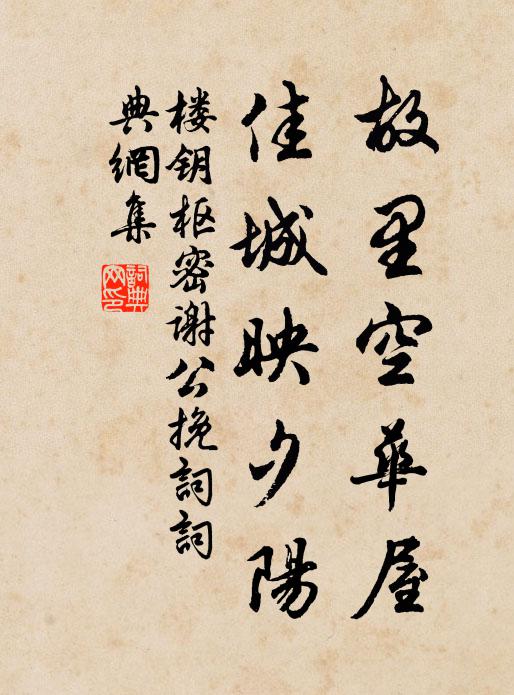 故里空華屋
佳城映夕陽
楼钥枢密谢公挽詞詞
典網集
詞典网印